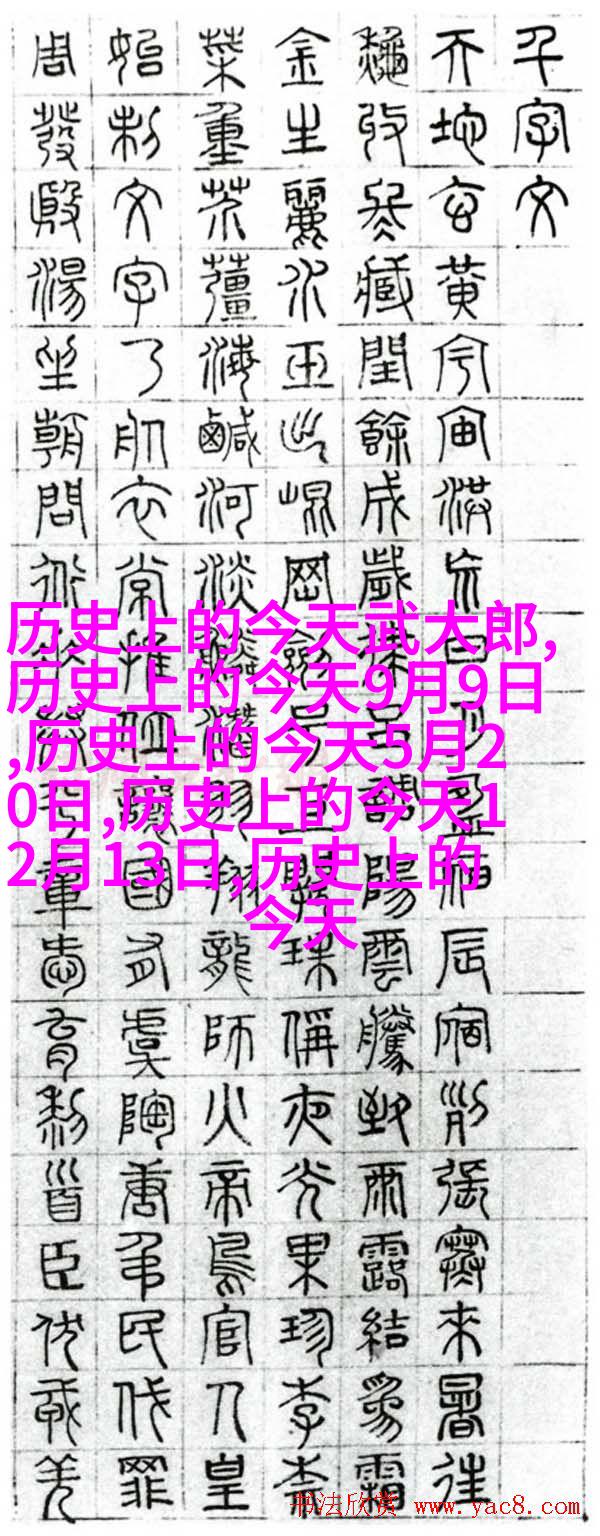 千字文
天地玄黃宇宙洪荒日月盈昃辰宿列張寒來暑往
秋收冬藏閏餘成歲律呂調陽雲騰致雨露結為霜
金生麗水玉出崐岡劍号巨闕珠稱夜光果珍李柰
菜重芥薑海鹹河淡鱗潛羽翔龍師火帝鳥官人皇
始制文字乃服衣常推位讓國有虞陶唐弔民伐罪
周發殷湯坐朝問道垂拱平章愛育黎首臣伏戎羌
历史上的今天武大郎,
历史上的今天9月9日
,历史上的今天5月2
0日,历史上的今天1
2月13日,历史上的
今天
书法欣赏 www.yac8.com